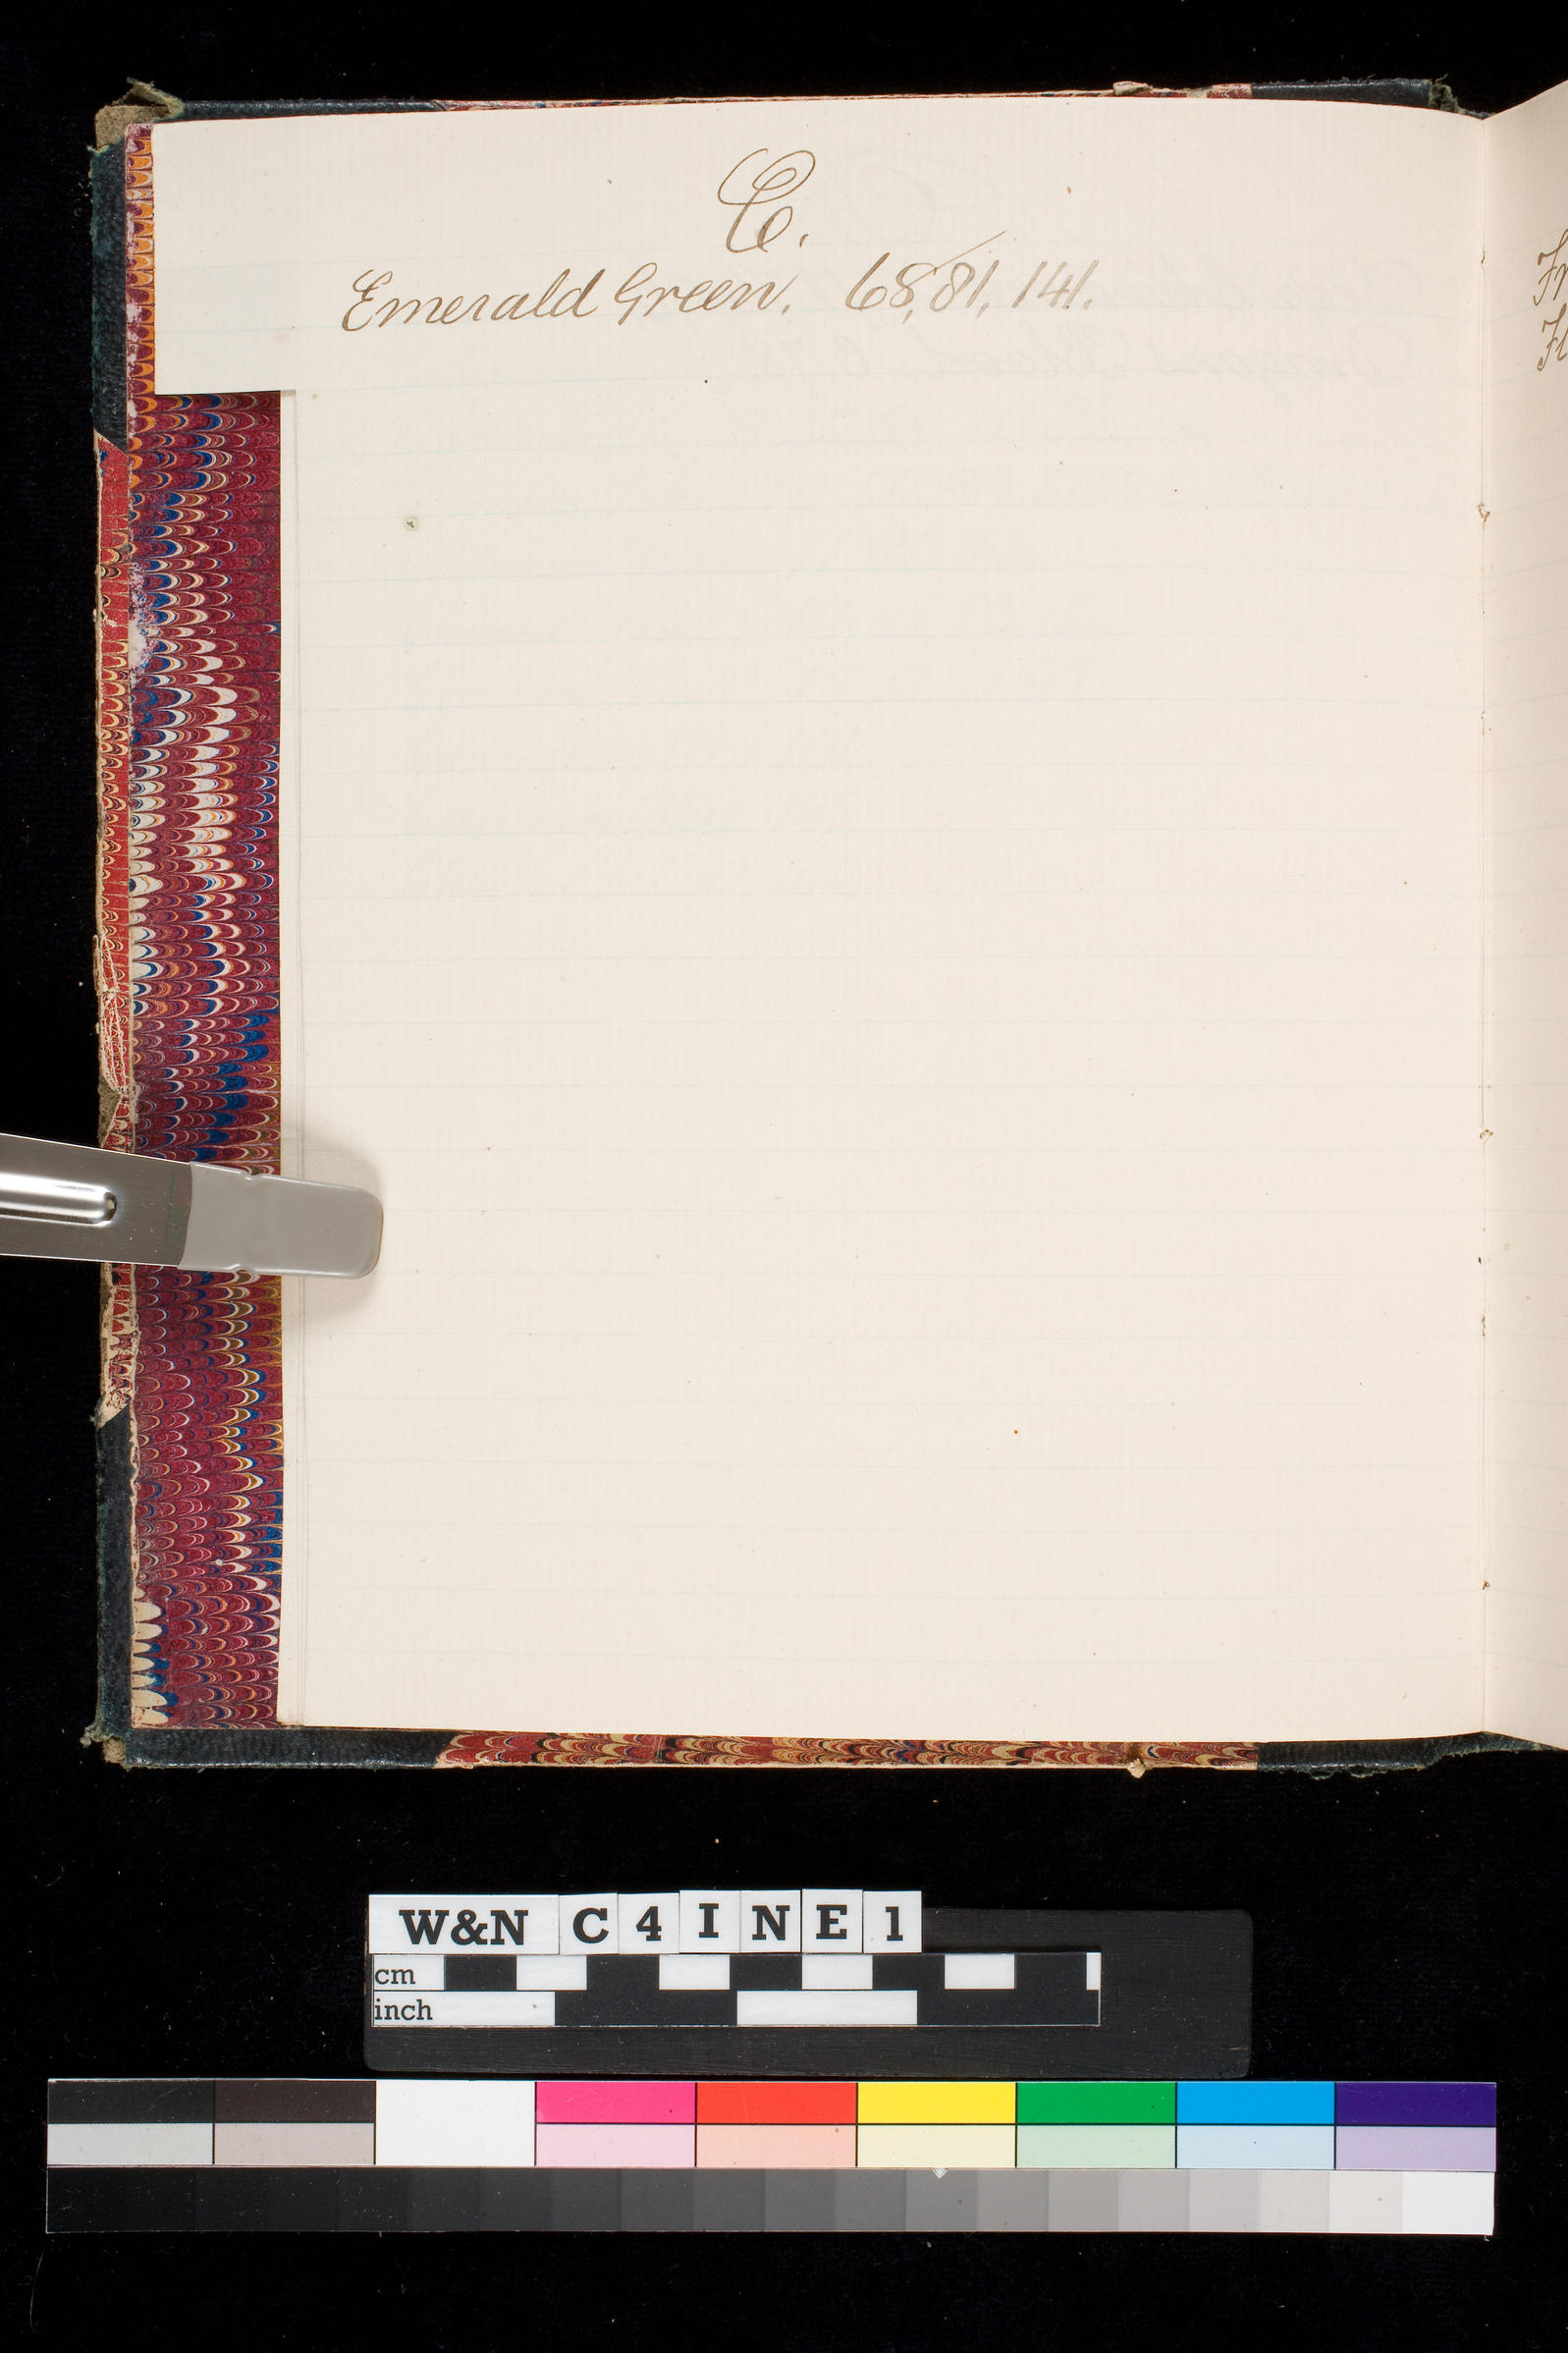 E.
Emerald Green. 68, 81, 141.
W&N C 4 I N E 1
cm
inch